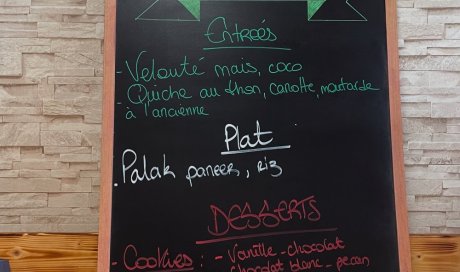 Entrées
- Velouté mais, coco
- Quiche au thon, carotte, moutarde
à l'ancienne
Plat
. Palak paneer, riz
DESSERTS
- Cookies : - Vanille - chocolat
- chocolat blanc - pecan